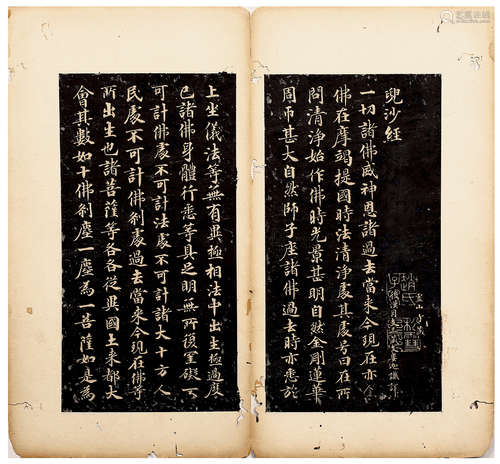 兜沙経
一切諸佛威神恩諸過去當來今現在亦介
佛在摩竭提國時法清淨處其處号曰在所
問清淨始作佛時光景甚明自然金剛蓮華
周帀甚大自然師子座諸佛過去時亦悉於
上坐儀法等無有異極相法中出生極過度
已諸佛身體行悉等具足明無所復罣礙不
可計佛處不可計法處不可計諸大十方人
民處不可計佛刹處過去當來今現在佛等
所出生也諸菩薩等各各從異國土來都大
會其數如十佛刹塵一塵為一菩薩如是為